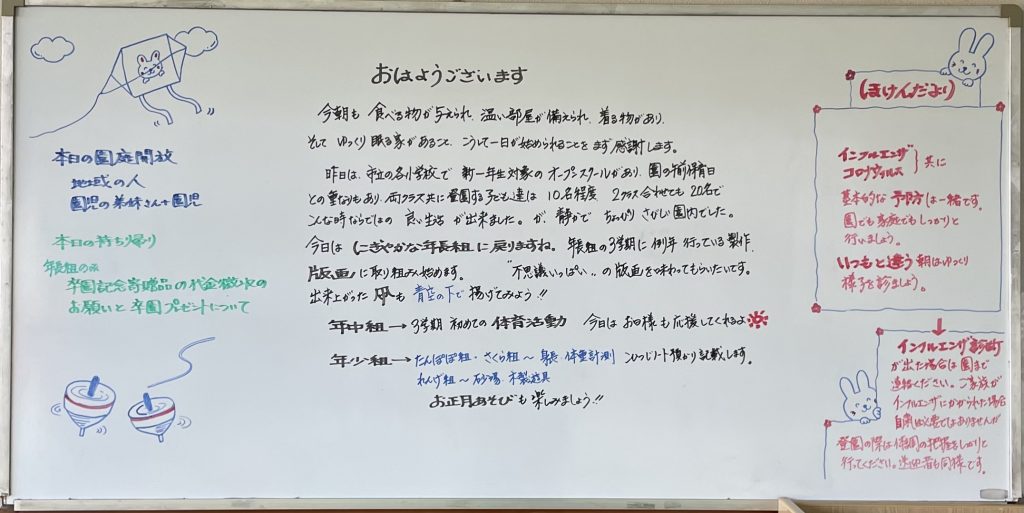 おはようございます
今朝も 食べる物が与えられ、温い部屋が備えられ、着る物があり、
そして ゆっくり眠る家があること、こうして一日が始められることをまず感謝します。
昨日は、市立の各小学校で 新一年生対象のオープンスクールがあり、園の午前保育日
との重なりもあり、両クラス共に登園する子ども達は 10名程度 2クラス合わせても20名で
こんな時ならではの 良い生活 が出来ました。が、静かで ちょっぴり さびしい園内でした。
今日は にぎやかな年長組に戻りますね。年長組の3学期に例年行っている製作、
版画に取り組み始めます。 “不思議いっぱい〟の版画を味わってもらいたいです。
出来上がった 凧も 青空の下で 揚げてみよう!!
年中組→ 3学期 初めての 体育活動 今日は お日様も応援してくれるよ
年少組→ たんぽぽ組・さくら組～ 身長・体重計測 ひつじノート預かり記載します。
れんげ組～ 砂場、木製遊具
お正月あそびも 楽しみましょう!!
本日の園庭開放
地域の人
園児の弟妹さん+園児
本日の持ち帰り
年長組のみ
卒園記念寄贈品の代金徴収の
お願いと卒園プレゼントについて
ほけんだより
インフルエンザ
コロナウィルス
共に
基本的な 予防方は一緒です。
園でも家庭でもしっかりと
行いましょう。
いつもと違う 朝はゆっくり
様子を診ましょう。
インフルエンザ診断
が出た場合は園まで
連絡ください。ご家族が
インフルエンザにかかられた場合
自粛は必要ではありませんが
登園の際は体調の把握をしっかりと
行ってください。送迎者も同様です。